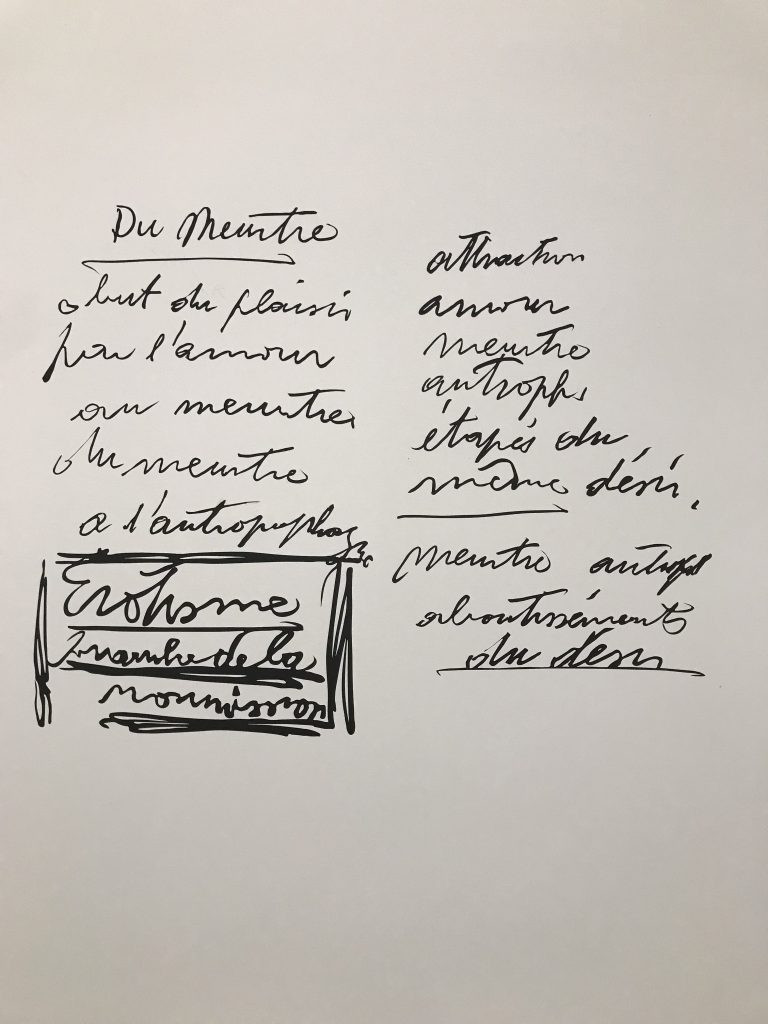 Du Meurtre
but du plaisir
par l'amour
au meurtre
du meurtre
a l'antropophag
Erotisme
branche de la
attraction
amour
meurtre
antroph
étapes du
même désir.
Meurtre antroph
aboutissements
du désir